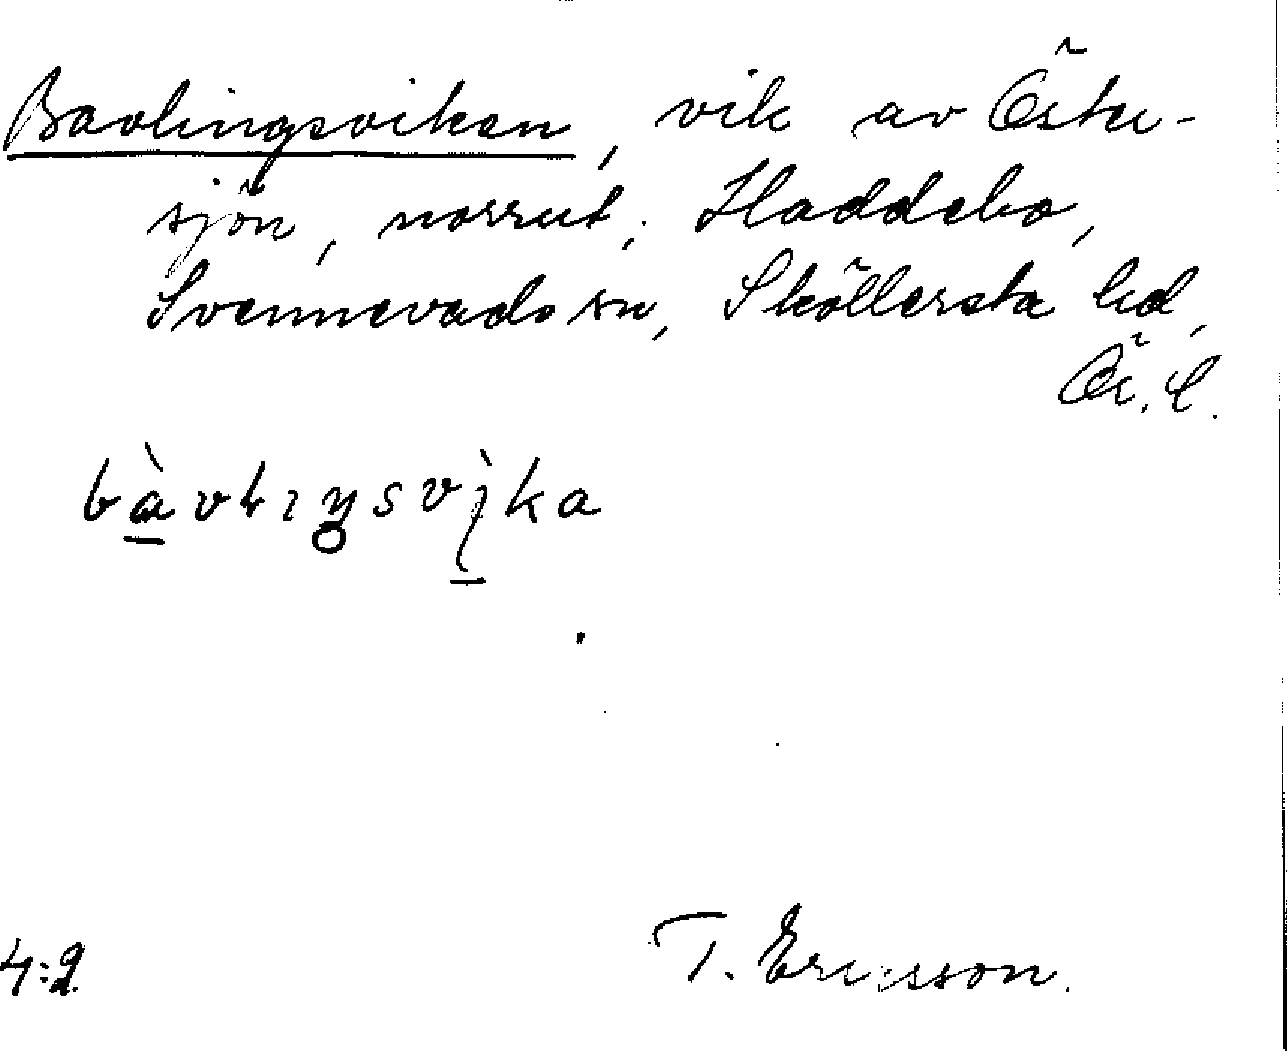 Bavlingsviken, vik av Öster-
sjön, norrut, Haddebo,
Svennevads sn, Sköllersta hd,
Ör. l.
bàvlıŋsvìka
4:2
T. Ericsson.